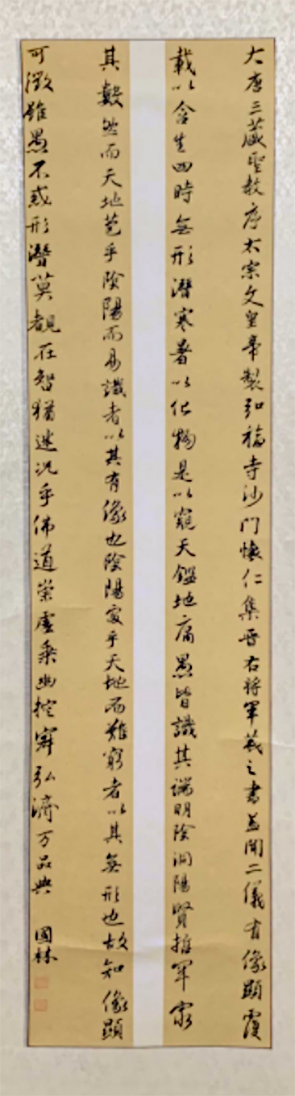 大唐三藏聖教序太宗文皇帝製弘福寺沙門懷仁集晉右將軍羲之書蓋聞二儀有像顯覆
載以含生四時無形潛寒暑以化物是以窺天鑑地庸愚皆識其端明陰洞陽賢哲罕窮
其數然而天地苞乎陰陽而易識者以其有像也陰陽處乎天地而難窮者以其無形也故知像顯
可徵雖愚不惑形潛莫覩在智猶迷況乎佛道崇虛乘幽控寂弘濟万品典
國林